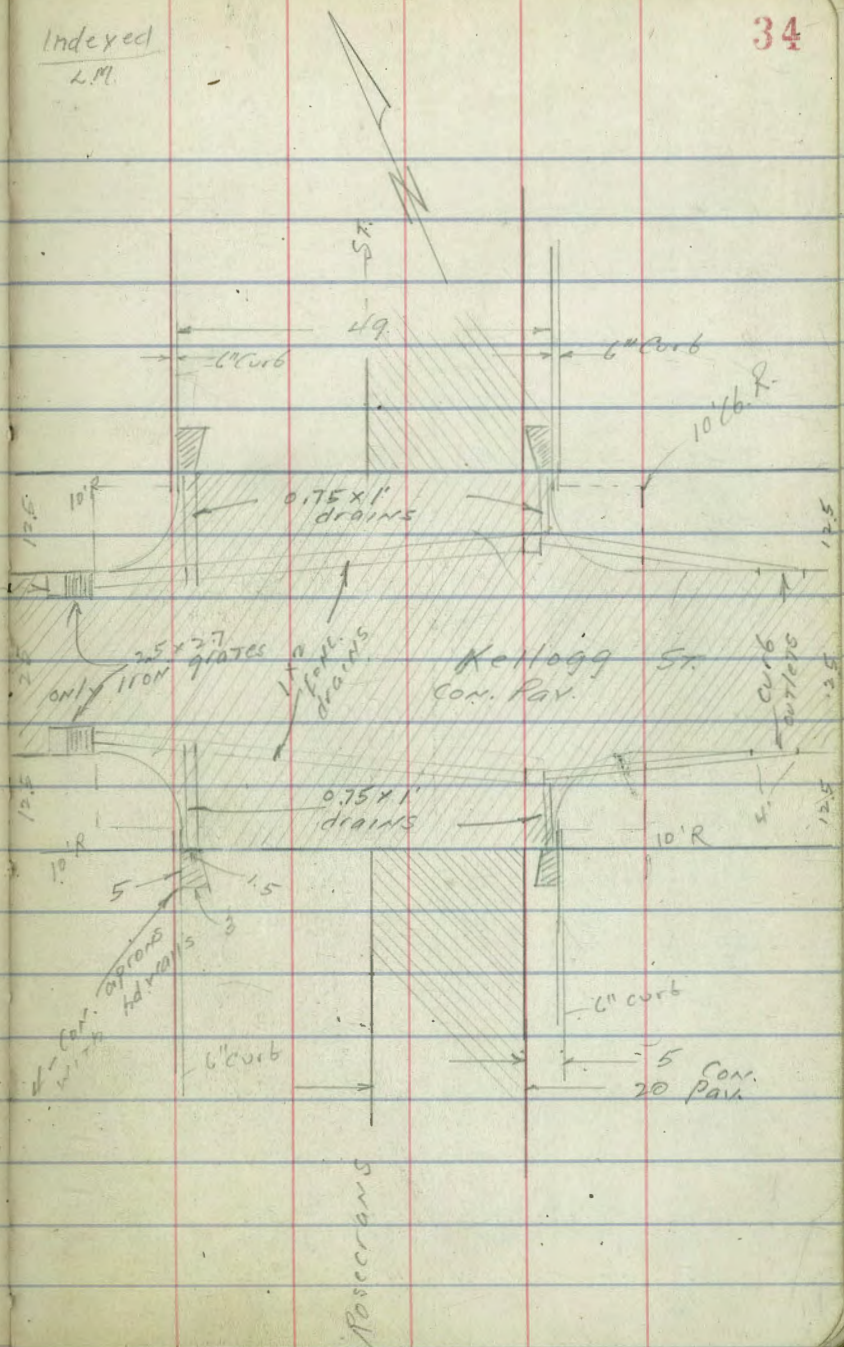 Indexed
L.M.
34
St.
49.
6" Curb
6" Curb
10' Cb. R.
10' R
0.75 x 1'
drains
12.5
12.5
2.5 x 2.7
iron grates
only
25
1 x 2
conc.
drains
Kellogg St.
Con. Pav.
Curb
outlets
12.5
12.5
12.5
0.75 x 1'
drains
4.
10' R
10' R
5
1.5
3
4 - Con. aprons
with hdwalls
6" curb
6" curb
5
20 Con.
Pav.
Rosecrans